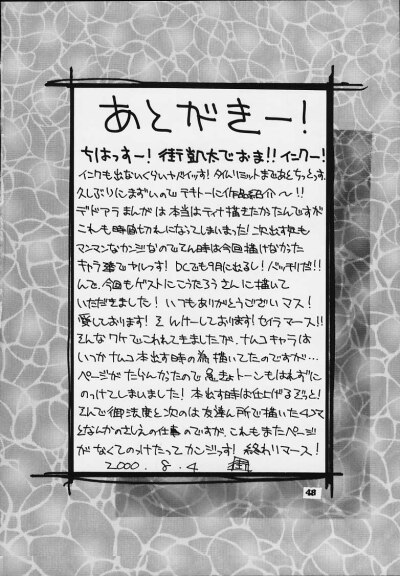 あとがきー!
ちはっすー! 街凱太でおま!! インクー!
インクも出ないくらいヤバイッす! タイムリミットまであとちっとっす。
久しぶりにまずいのでテキトーに作品紹介〜!!
デドアラまんがは本当はティナ描きたかたんですが
これも時間切れになってしまいまった! 次出す
マンマンなカンジなのでてん時は今回描けなかった
キャラ達でヤルっす! DCでも9月に出るし! バッチリだ!!
んで、今回もゲストにこうたろうさんに描いて
いただきました! いつもありがとうございマス!
愛しております! そんけーしております! セイラマース!!
そんなワケでこれてきましたが、ナムコキャラは
いつかナムコ本出す時の為描いてたのですが…
ページがたらんかったので急きょトーンもはれずに
のっけてしまいました! 本出す時は仕上げるぞっと!
そんで御法度と次のは友達ん所で描いた4コマ
となんかのさしえの仕事のですが、これもまたページ
がなくてのっけたってカンジっす! 終わりマース!
2000.8.4
48